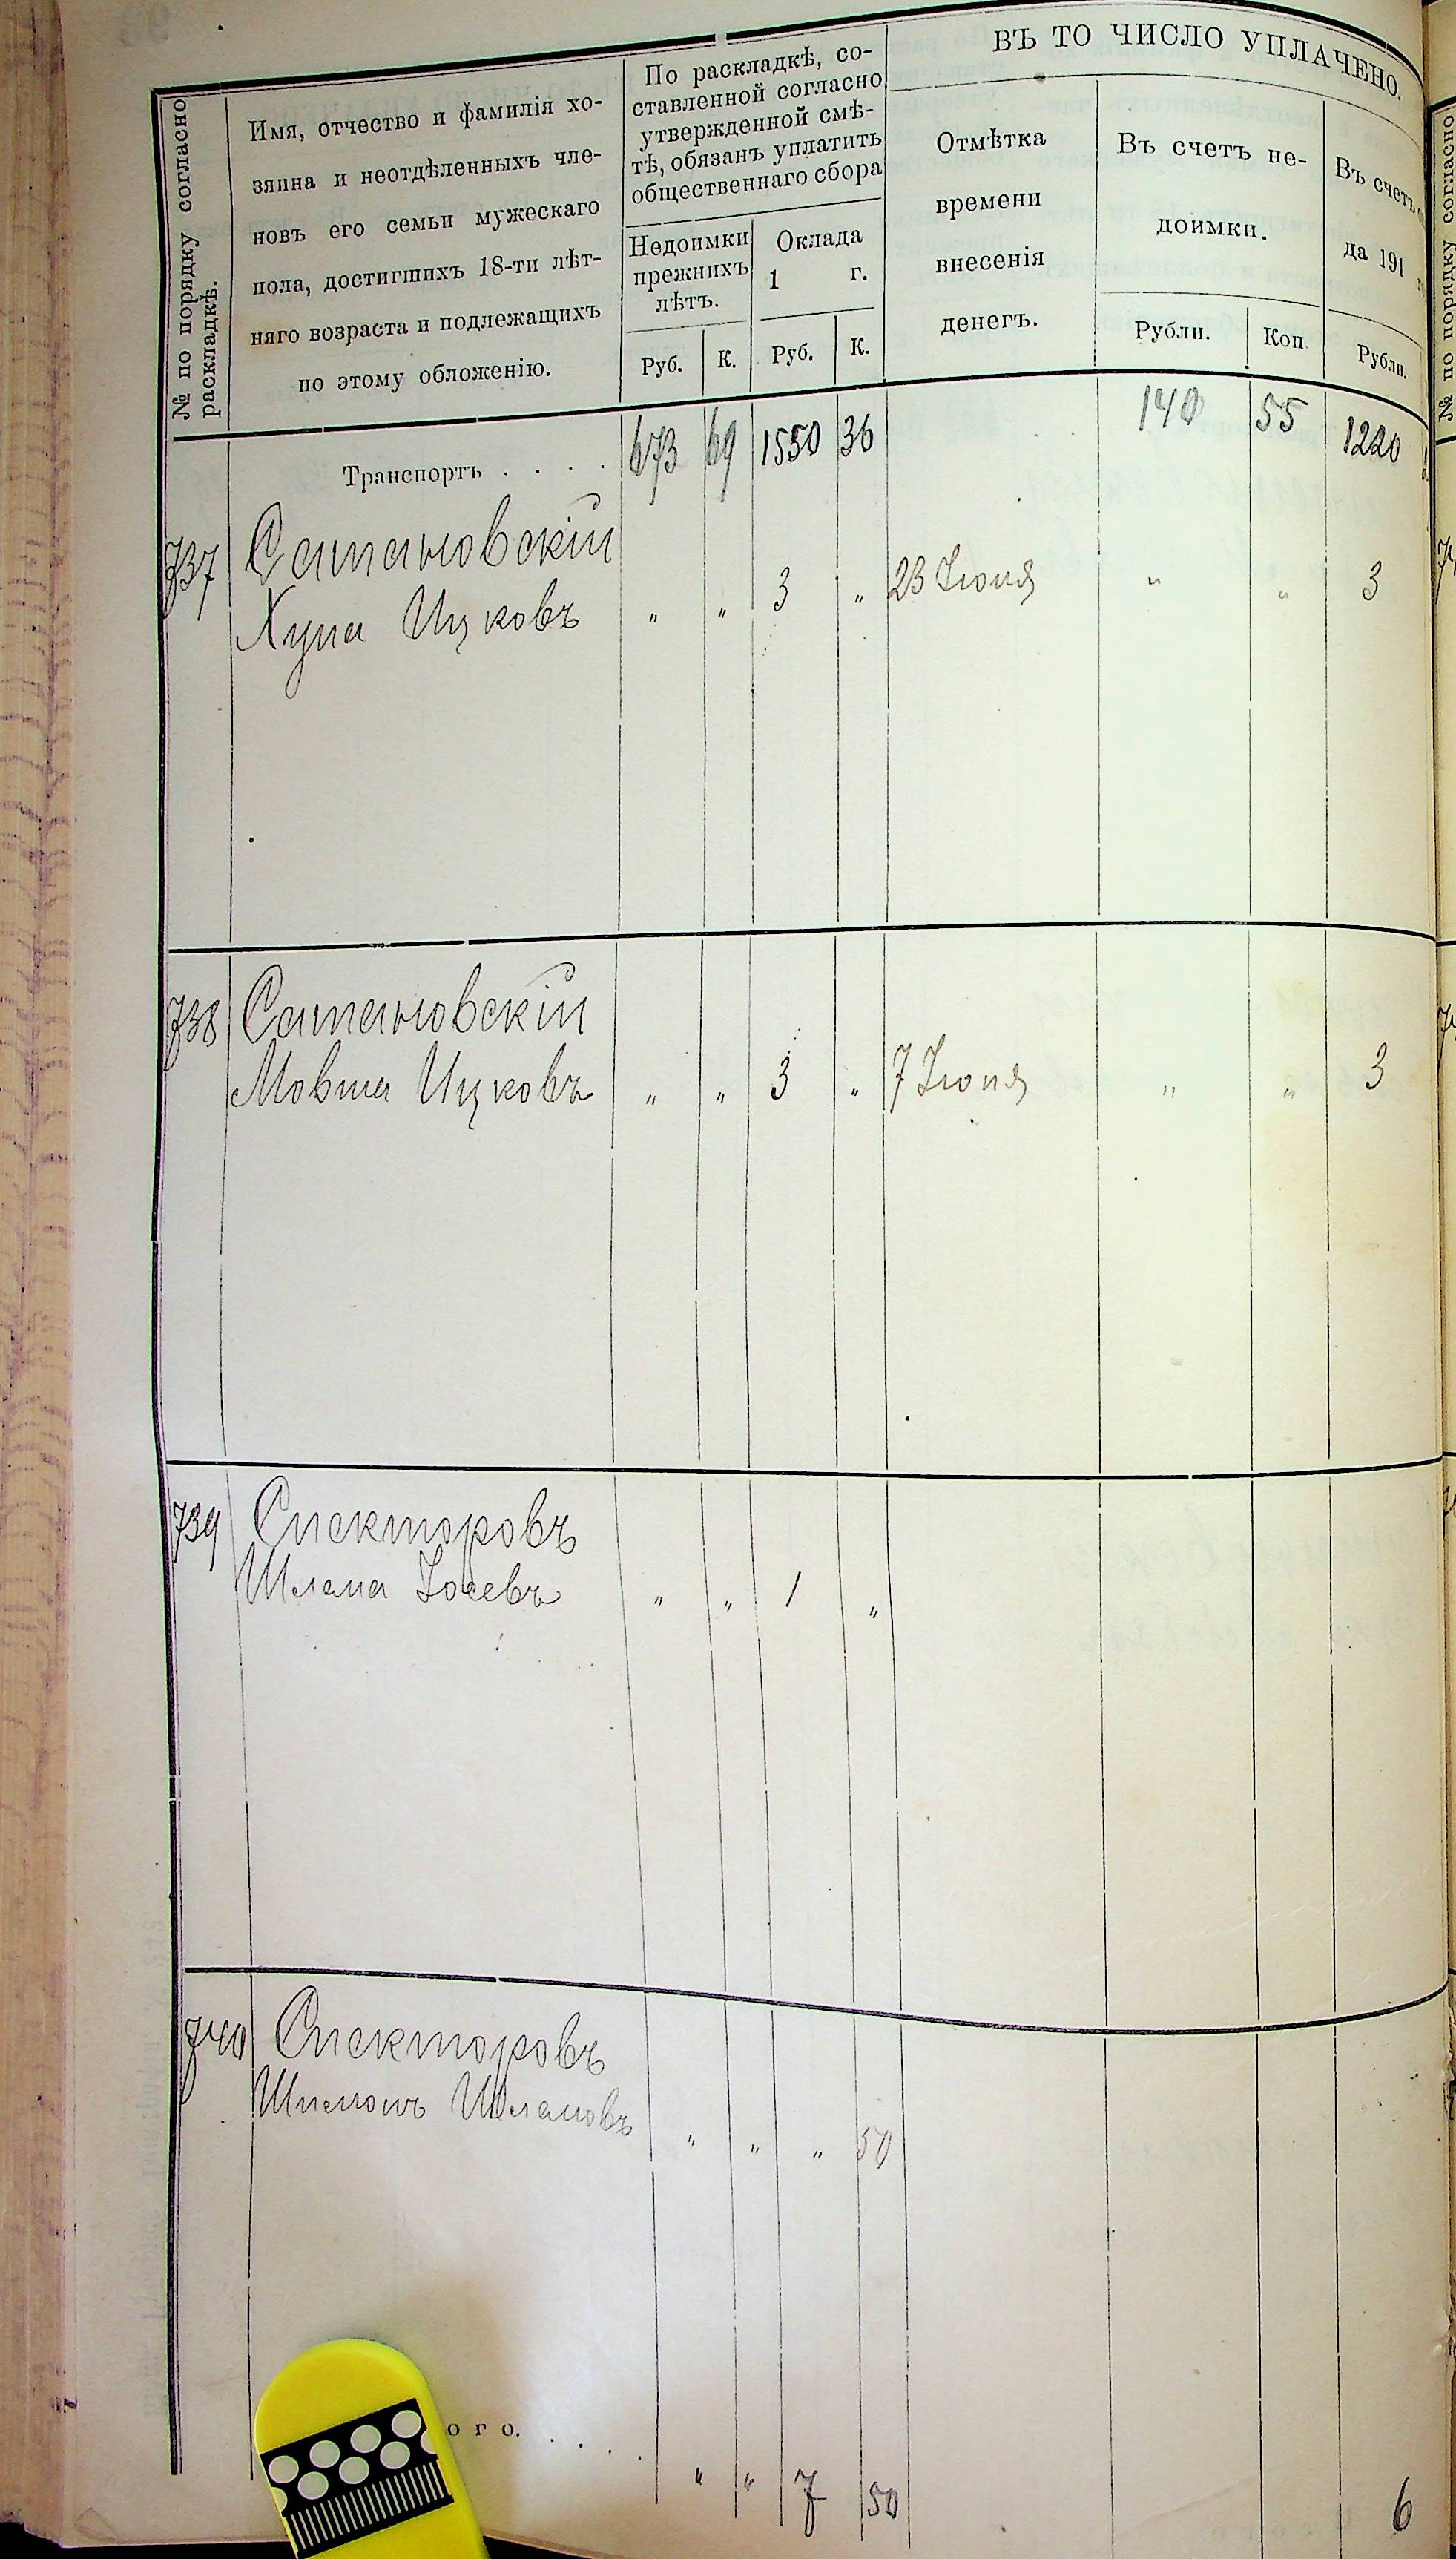 № по порядку согласно
раскладкѣ.
Имя, отчество и фамилія хо-
зяина и неотдѣленныхъ чле-
новъ его семьи мужескаго
пола, достигшихъ 18-ти лѣт-
няго возраста и подлежащихъ
по этому обложенію.
По раскладкѣ, со-
ставленной согласно
утвержденной смѣ-
тѣ, обязанъ уплатить
общественнаго сбора
Недоимки
прежнихъ
лѣтъ.
Оклада
1 г.
Руб. К. Руб. К.
ВЪ ТО ЧИСЛО УПЛАЧЕНО.
Отмѣтка
времени
внесенія
денегъ.
Въ счетъ не-
доимки.
Рубли. Коп.
Въ счетъ
да 191
Рубли.
Транспортъ . . . . 673 69 1550 36 140 55 1220
737 Сатановскій
Хуна Ицковъ " " 3 " 23 Іюня " " 3
738 Сатановскій
Мовша Ицковъ " " 3 " 7 Іюня " " 3
739 Спекторовъ
Шлема Іосевъ " " 1 "
740 Спекторовъ
Шимонъ Шлемовъ " " " 50
ого. . . . . " " 7 50 6
№ по порядку согласно